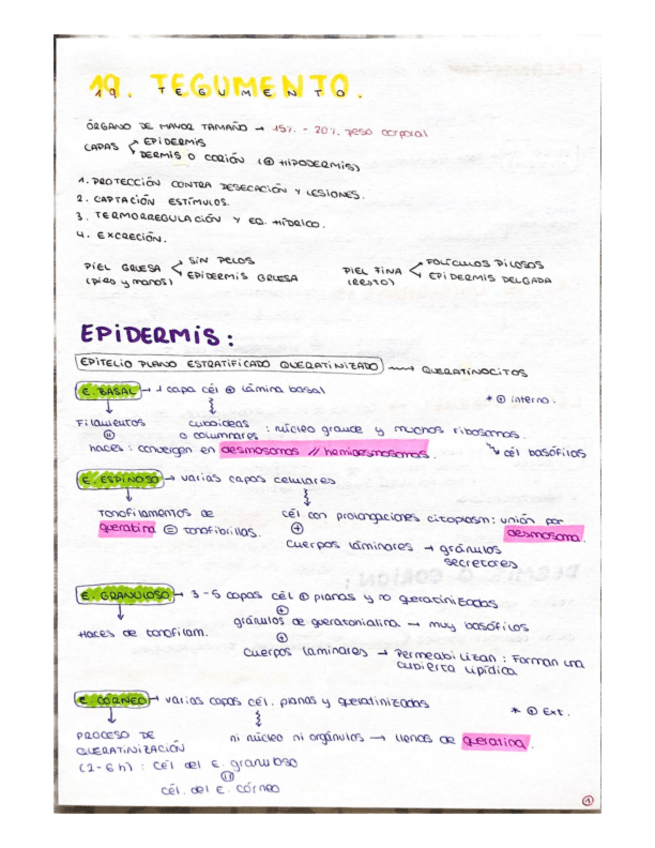 19. TEGUMENTO.
TEGUMENTO
ÓRGANO DE MAYOR TAMAÑO → 15% - 20% peso corporal
CAPAS EPIDERMIS
DERMIS O CORIÓN (⊕ HIPODERMIS)
1. PROTECCIÓN CONTRA DESECACIÓN Y LESIONES.
2. CAPTACIÓN ESTÍMULOS.
3. TERMORREGULACIÓN Y EQ. HÍDRICO.
4. EXCRECIÓN.
PIEL GRUESA (pies y manos) SIN PELOS
EPIDERMIS GRUESA
PIEL FINA (RESTO) FOLÍCULOS PILOSOS
EPIDERMIS DELGADA
EPIDERMIS:
EPITELIO PLANO ESTRATIFICADO QUERATINIZADO → QUERATINOCITOS
E. BASAL → 1 capa cél ⊕ lámina basal
* ⊕ interno.
Filamentos
cuboideas
o columnares : núcleo grande y muchos ribosomas.
haces : convergen en desmosomas // hemidesmosomas.
cél basófilas
E. ESPINOSO → varias capas celulares
Tonofilamentos de
queratina = tonofibrillas.
cél con prolongaciones citoplasm: unión por
desmosoma.
⊕
cuerpos láminares → gránulos
secretores
E. GRANULOSO → 3-5 capas cél ⊕ planas y no queratinizadas
⊕
Haces de tonofilam.
gránulos de queratohialina → muy basófilos
⊕
cuerpos laminares → Permeabilizan : Forman una
cubierta lipídica
E. CÓRNEO → varias capas cél. planas y queratinizadas
* ⊕ Ext.
PROCESO DE
QUERATINIZACIÓN
ni núcleo ni orgánulos → llenas de queratina.
(2-6 h) : cél del E. granuloso
cél. del E. córneo
1